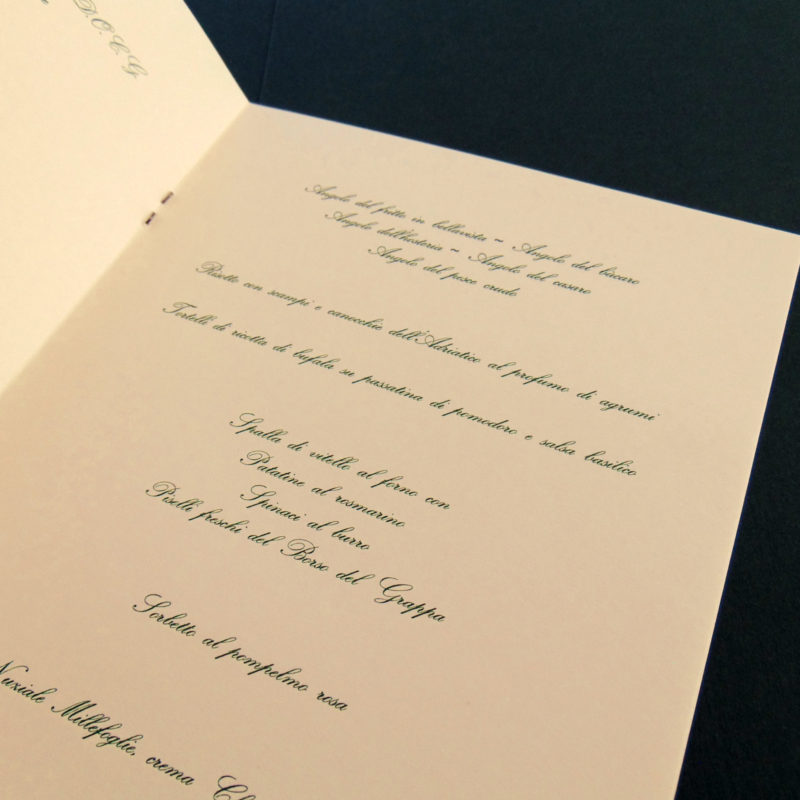 D.O.C.G
Angolo del fritto in bellavista ~ Angolo del bàcaro
Angolo dell'hosteria ~ Angolo del casaro
Angolo del pesce crudo
Risotto con scampi e canocchie dell'Adriatico al profumo di agrumi
Tortelli di ricotta di bufala su passatina di pomodoro e salsa basilico
Spalla di vitello al forno con
Patatine al rosmarino
Spinaci al burro
Piselli freschi del Borso del Grappa
Sorbetto al pompelmo rosa
Nuziale Millefoglie, crema